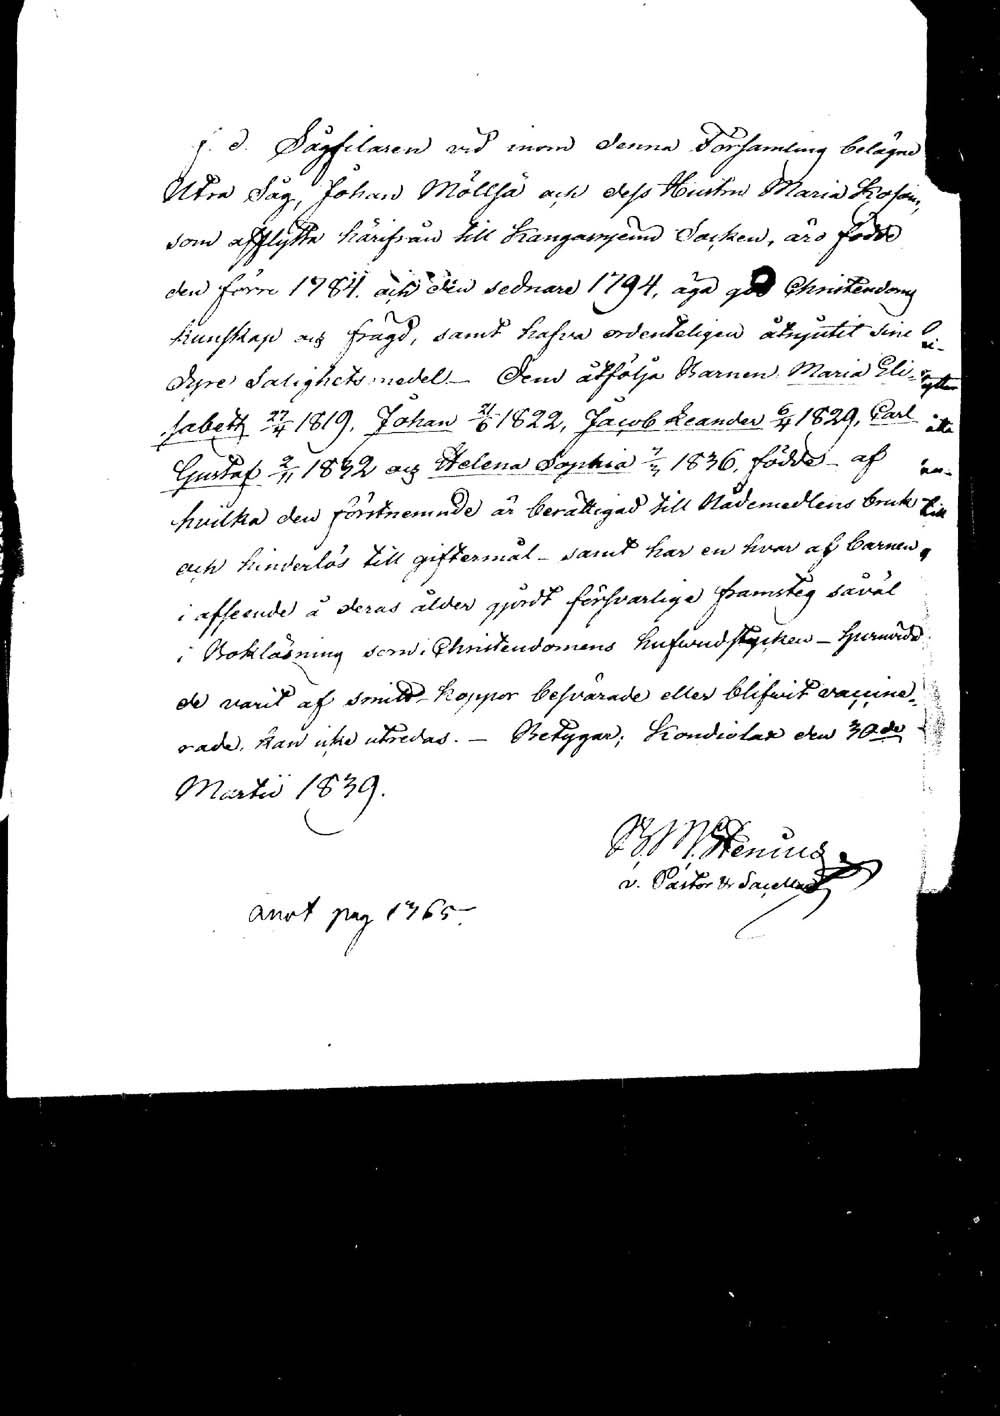 f. d. Sågfilaren vid inom denna Församling belägne
Utra Såg, Johan Möllsä och dess Hustru Maria
som afflytta härifrån till Kangasnjemi Socken, äro födde
den förre 1784. och den sednare 1794, äga god Christendoms
kunskap och frägd, samt hafva ordenteligen åtnjutit sine
dyre Salighets medel – Dem åtfölja Barnen Maria Eli-
sabeth 27/4 1819, Johan 21/6 1822, Jacob Leander 6/4 1829, Carl
Gustaf 2/11 1832 och Helena Sophia 7/3 1836, födde – af
hvilka den förstnemnde är berättigad till Nådemedlens bruk
och hinderlös till giftermål – samt har en hvar af barnen
i afseende å deras ålder gjordt försvarliga framsteg såväl
i Bokläsning som i Christendomens hufvudstycken – huruvida
de varit af smitt-koppor besvärade eller blifvit vaccine-
rade, kan icke utredas. – Betygar; Kondiolax den 30de
Martii 1839.
Stenius
v. Pastor &
anot pag 1365.